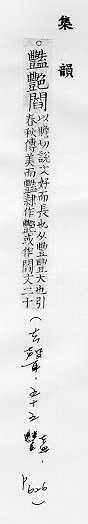 集韻
○豔艷閻
以贍切說文好而長也从豐豐大也引
春秋傳美而豔隸作艷或作閻文二十
(去聲.五十五豔.